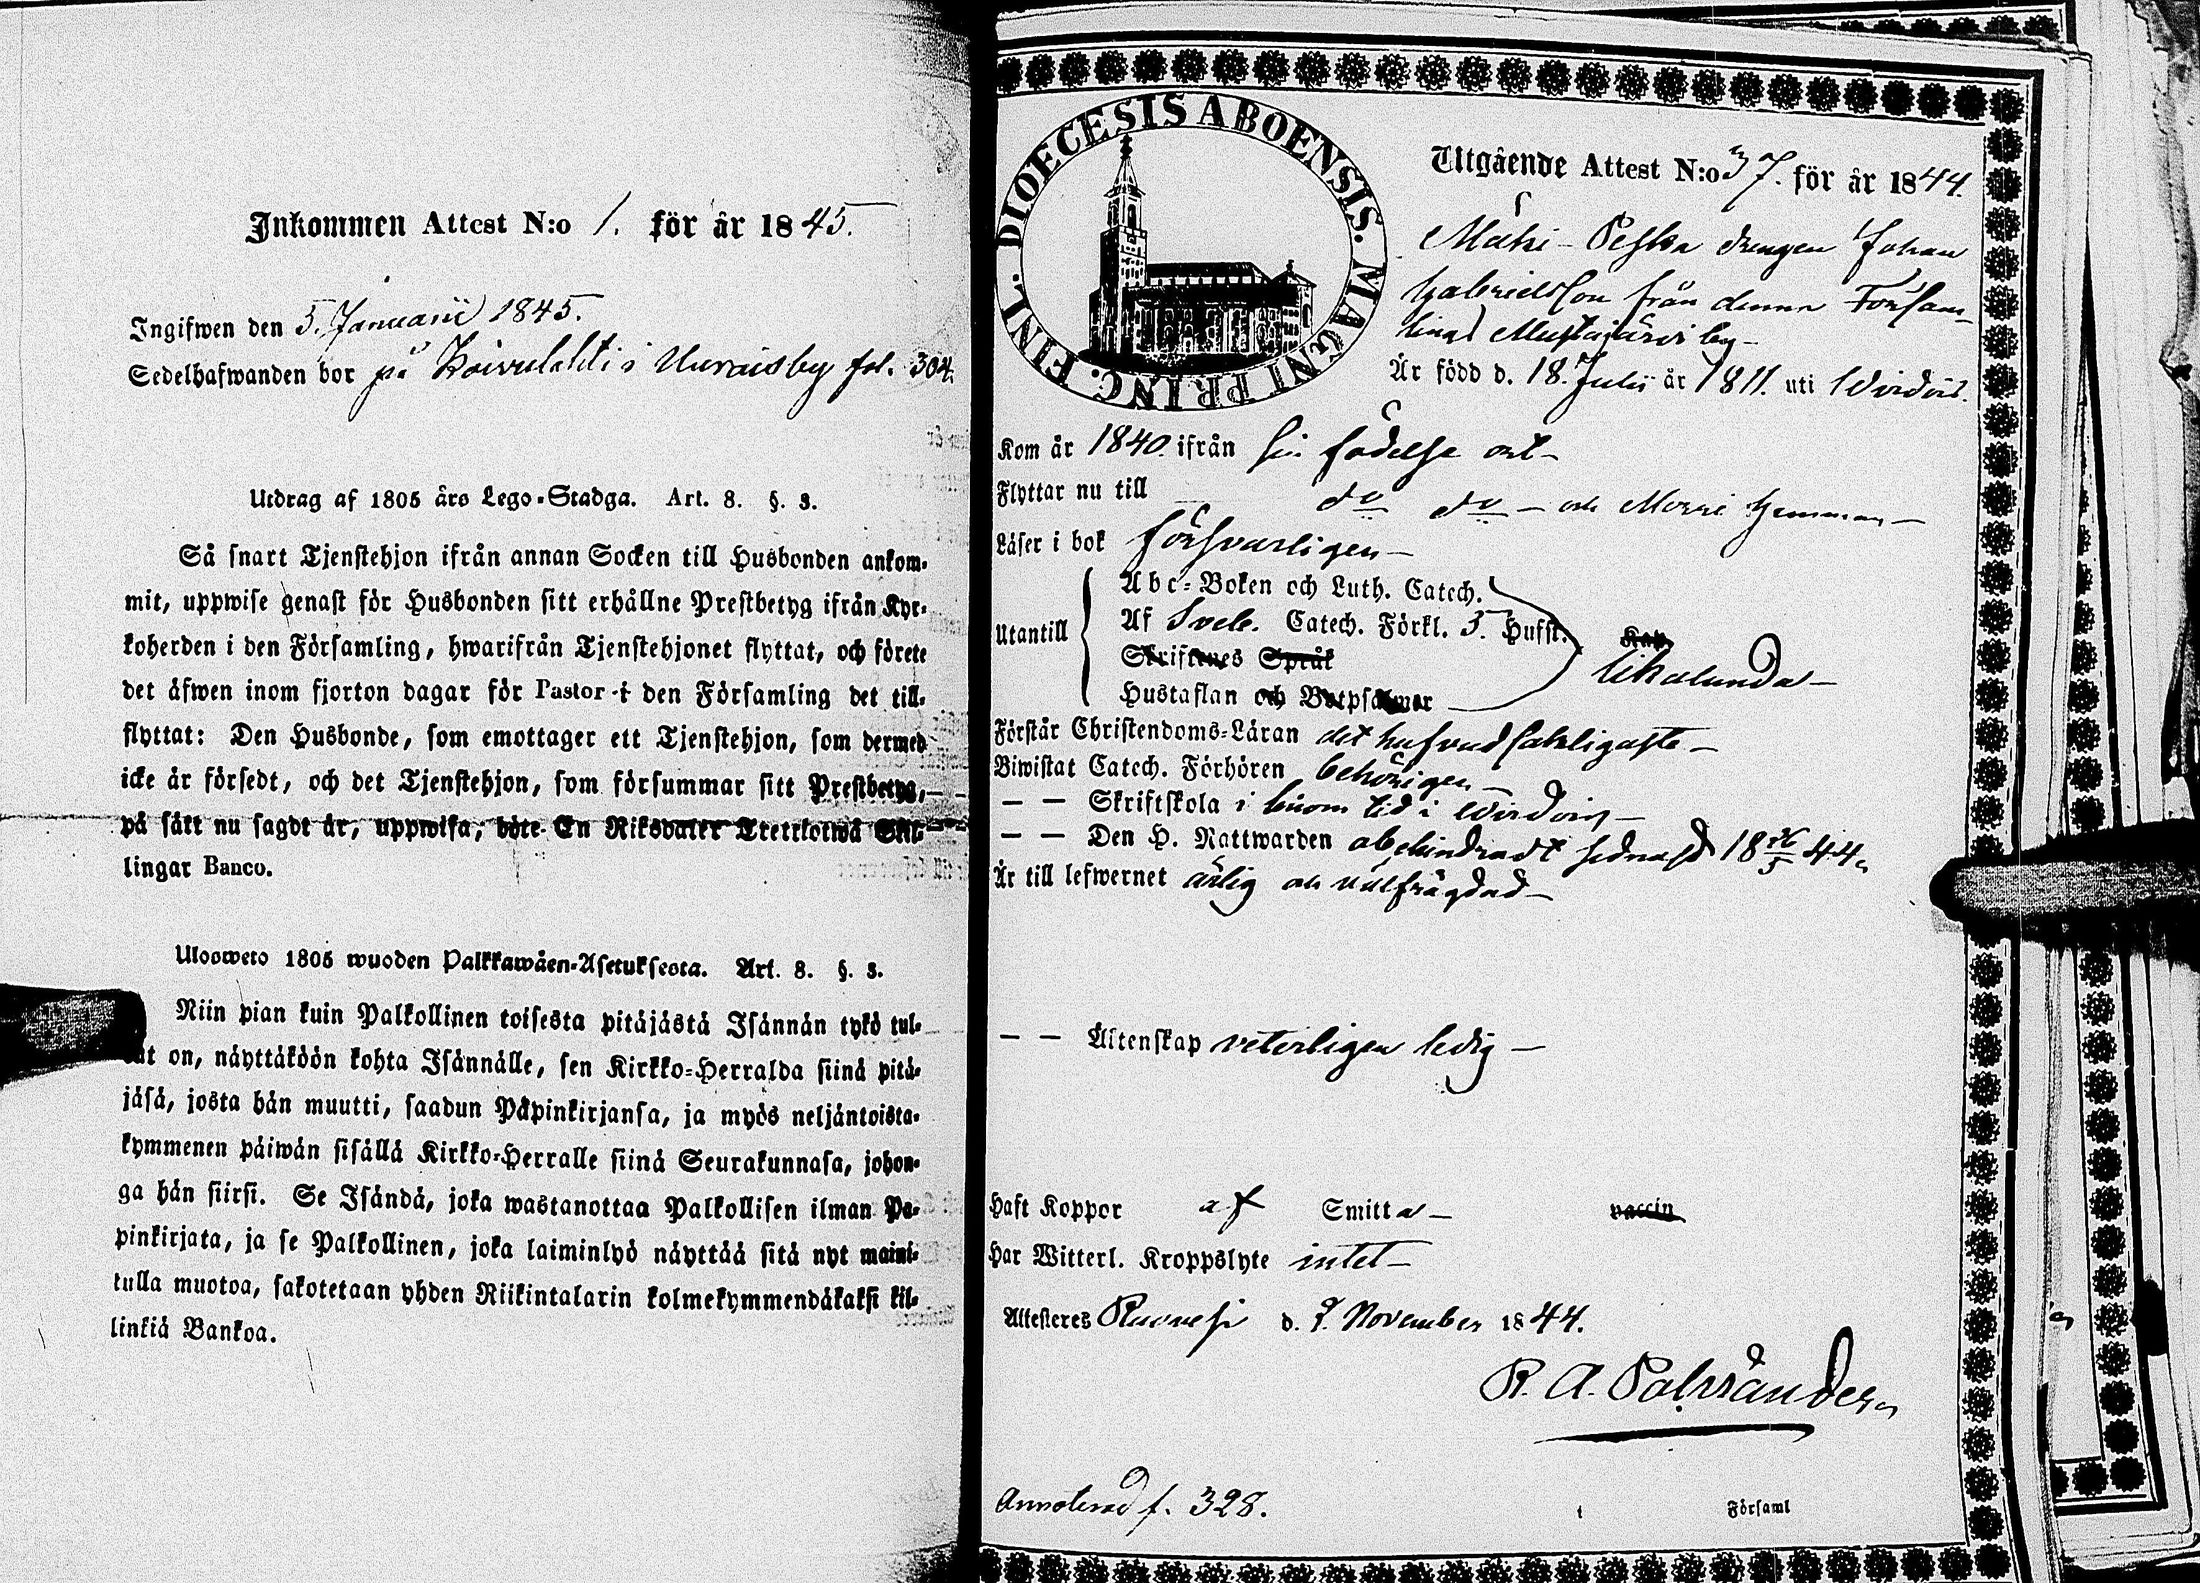 Inkommen Attest N:o 1. för år 1845.
Ingifwen den 5. Januarii 1845.
Sedelhafwanden bor på Koivulahti i Uuraisby fol. 304.
Utdrag af 1805 års Lego-Stadga. Art. 8. §. 3.
Så snart Tjenstehjon ifrån annan Socken till Husbonden ankom-
mit, uppwise genast för Husbonden sitt erhållne Prestbetyg ifrån Kyr-
koherden i den Församling, hwarifrån Tjenstehjonet flyttat, och förete
det äfwen inom fjorton dagar för Pastor i den Församling det till-
flyttat: Den Husbonde, som emottager ett Tjenstehjon, som dermed
icke är försedt, och det Tjenstehjon, som försummar sitt Prestbetyg,
på sätt nu sagdt är, uppwisa, böte En Riksdaler Trettiotwå Skil-
lingar Banco.
Ulosweto 1805 wuoden Palkkawäen-Asetuksesta. Art. 8. §. 3.
Niin pian kuin Palkollinen toisesta pitäjästä Isännän tykö tul-
lut on, näyttäköön kohta Isännälle, sen Kirkko-Herralda siinä pitä-
jäsä, josta hän muutti, saadun Päpinkirjansa, ja myös neljäntoista-
kymmenen päiwän sisällä Kirkko-Herralle siinä Seurakunnasa, johon-
ga hän siirsi. Se Isändä, joka wastanottaa Palkollisen ilman Pa-
pinkirjata, ja se Palkollinen, joka laiminlyö näyttää sitä nyt maini-
tulla muotoa, sakotetaan yhden Riikintalarin kolmekymmendäkaksi kil-
linkiä Bankoa.
DIOECESIS ABOENSIS. MAGNI PRINC. FINL.
Utgående Attest N:o 37. för år 1844.
Mäki-Peska drengen Johan
Gabrielsson från denna Försam-
lings Mustajärvi by
Är född d. 18. Julii år 1811. uti Wirdois.
Kom år 1840. ifrån sin födelse ort
Flyttar nu till do do och hemman
Läser i bok försvarligen
Utantill
Abc-Boken och Luth. Catech.
Af Sveb. Catech. Förkl. 3. Hufst.
Skriftenes Språk
Hustaflan och Botpsalmer
Kan
likalunda
Förstår Christendoms-Läran det hufvudsakligaste
Biwistat Catech. Förhören behörigen
— — Skriftskola i sinom tid i Wirdois
— — Den H. Nattwarden obehindradt sednast 18 44.
Är till lefwernet ärlig och välfrägdad
— — Äktenskap veterligen ledig
Haft Koppor af Smitta vaccin
Har Witterl. Kroppslyte intet
Attesteres Ruovesi d. 9. November 1844.
R. A. Palmrander
Annoterad f. 328.
Församl